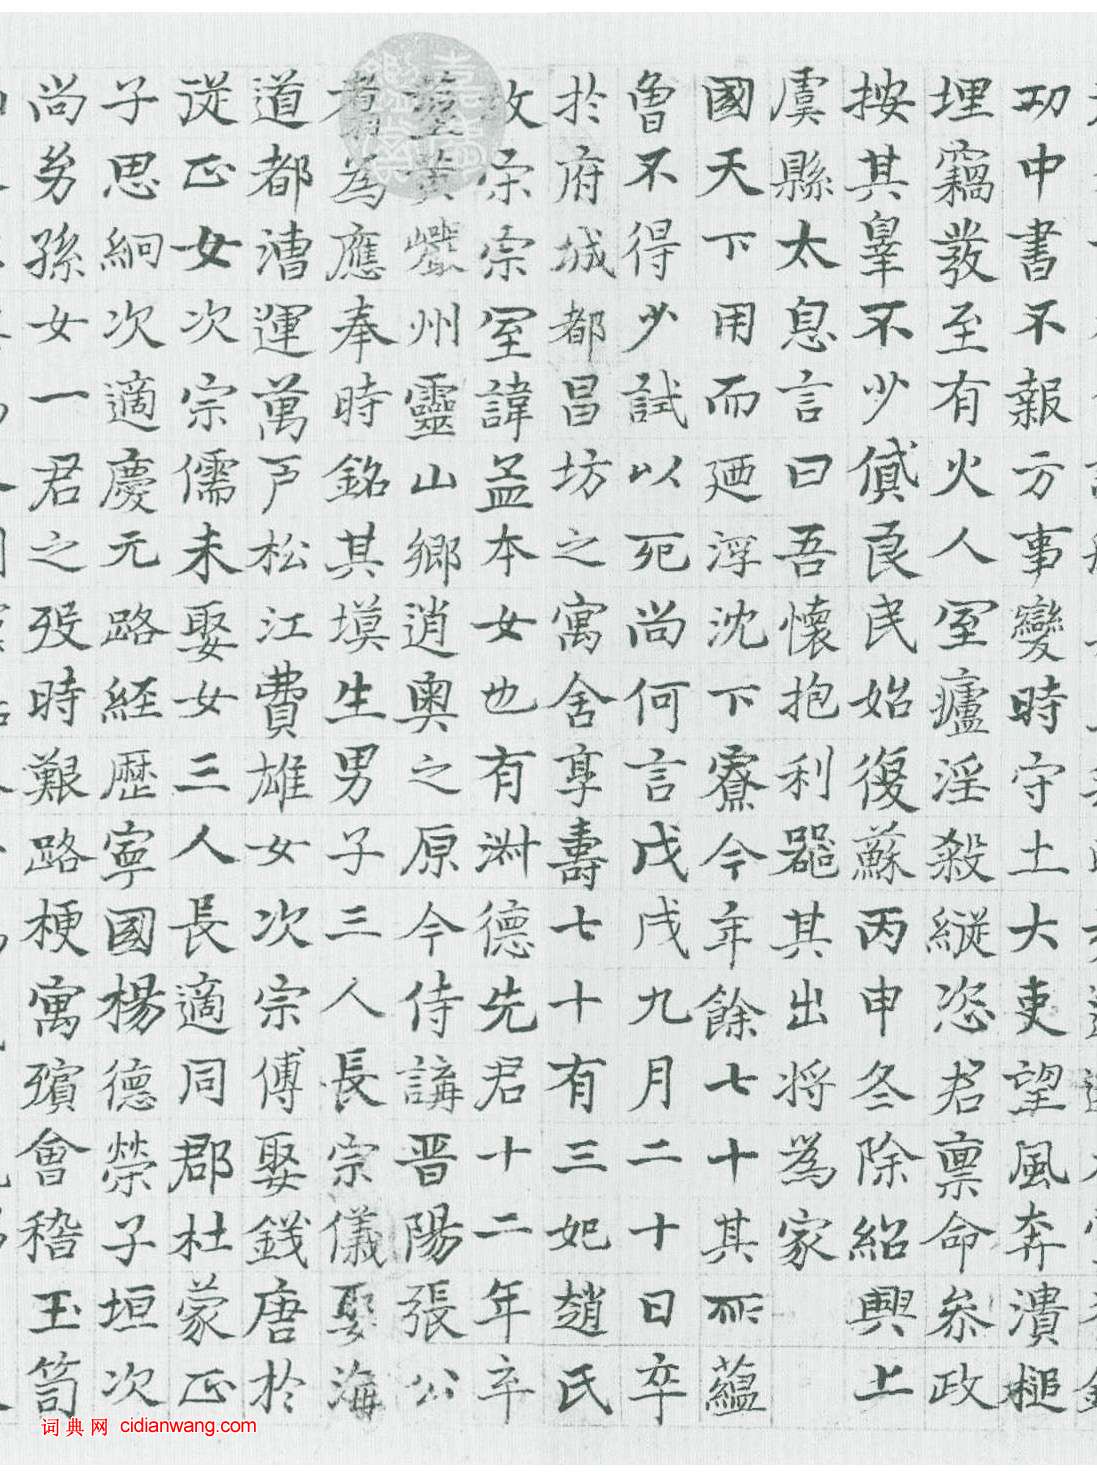 功中書不報方事變時守土大吏望風奔潰槌
埋竊發至有火人室廬淫殺縱恣君稟命叅政
按其辠不少貸良民始復蘇丙申冬除紹興上
虞縣太息言曰吾懷抱利器其出將為家
國天下用而廼浮沈下寮今年餘七十其所蘊
魯不得少試以死尚何言戊戌九月二十日卒
於府城都昌坊之寓舍享壽七十有三妃趙氏
故宋宗室諱孟本女也有淋德先君十二年卒
黃巖州靈山鄉逍奧之原今侍講晋陽張公
為應奉時銘其塻生男子三人長宗儀娶海
道都漕運萬戸松江費雄女次宗傅娶錢唐於
従正女次宗儒未娶女三人長適同郡杜蒙正
子思絅次適慶元路経歷寧國楊德榮子垣次
尚㓜孫女一君之歿時艱路梗寓殯會稽玉笥
詞典网 cidianwang.com